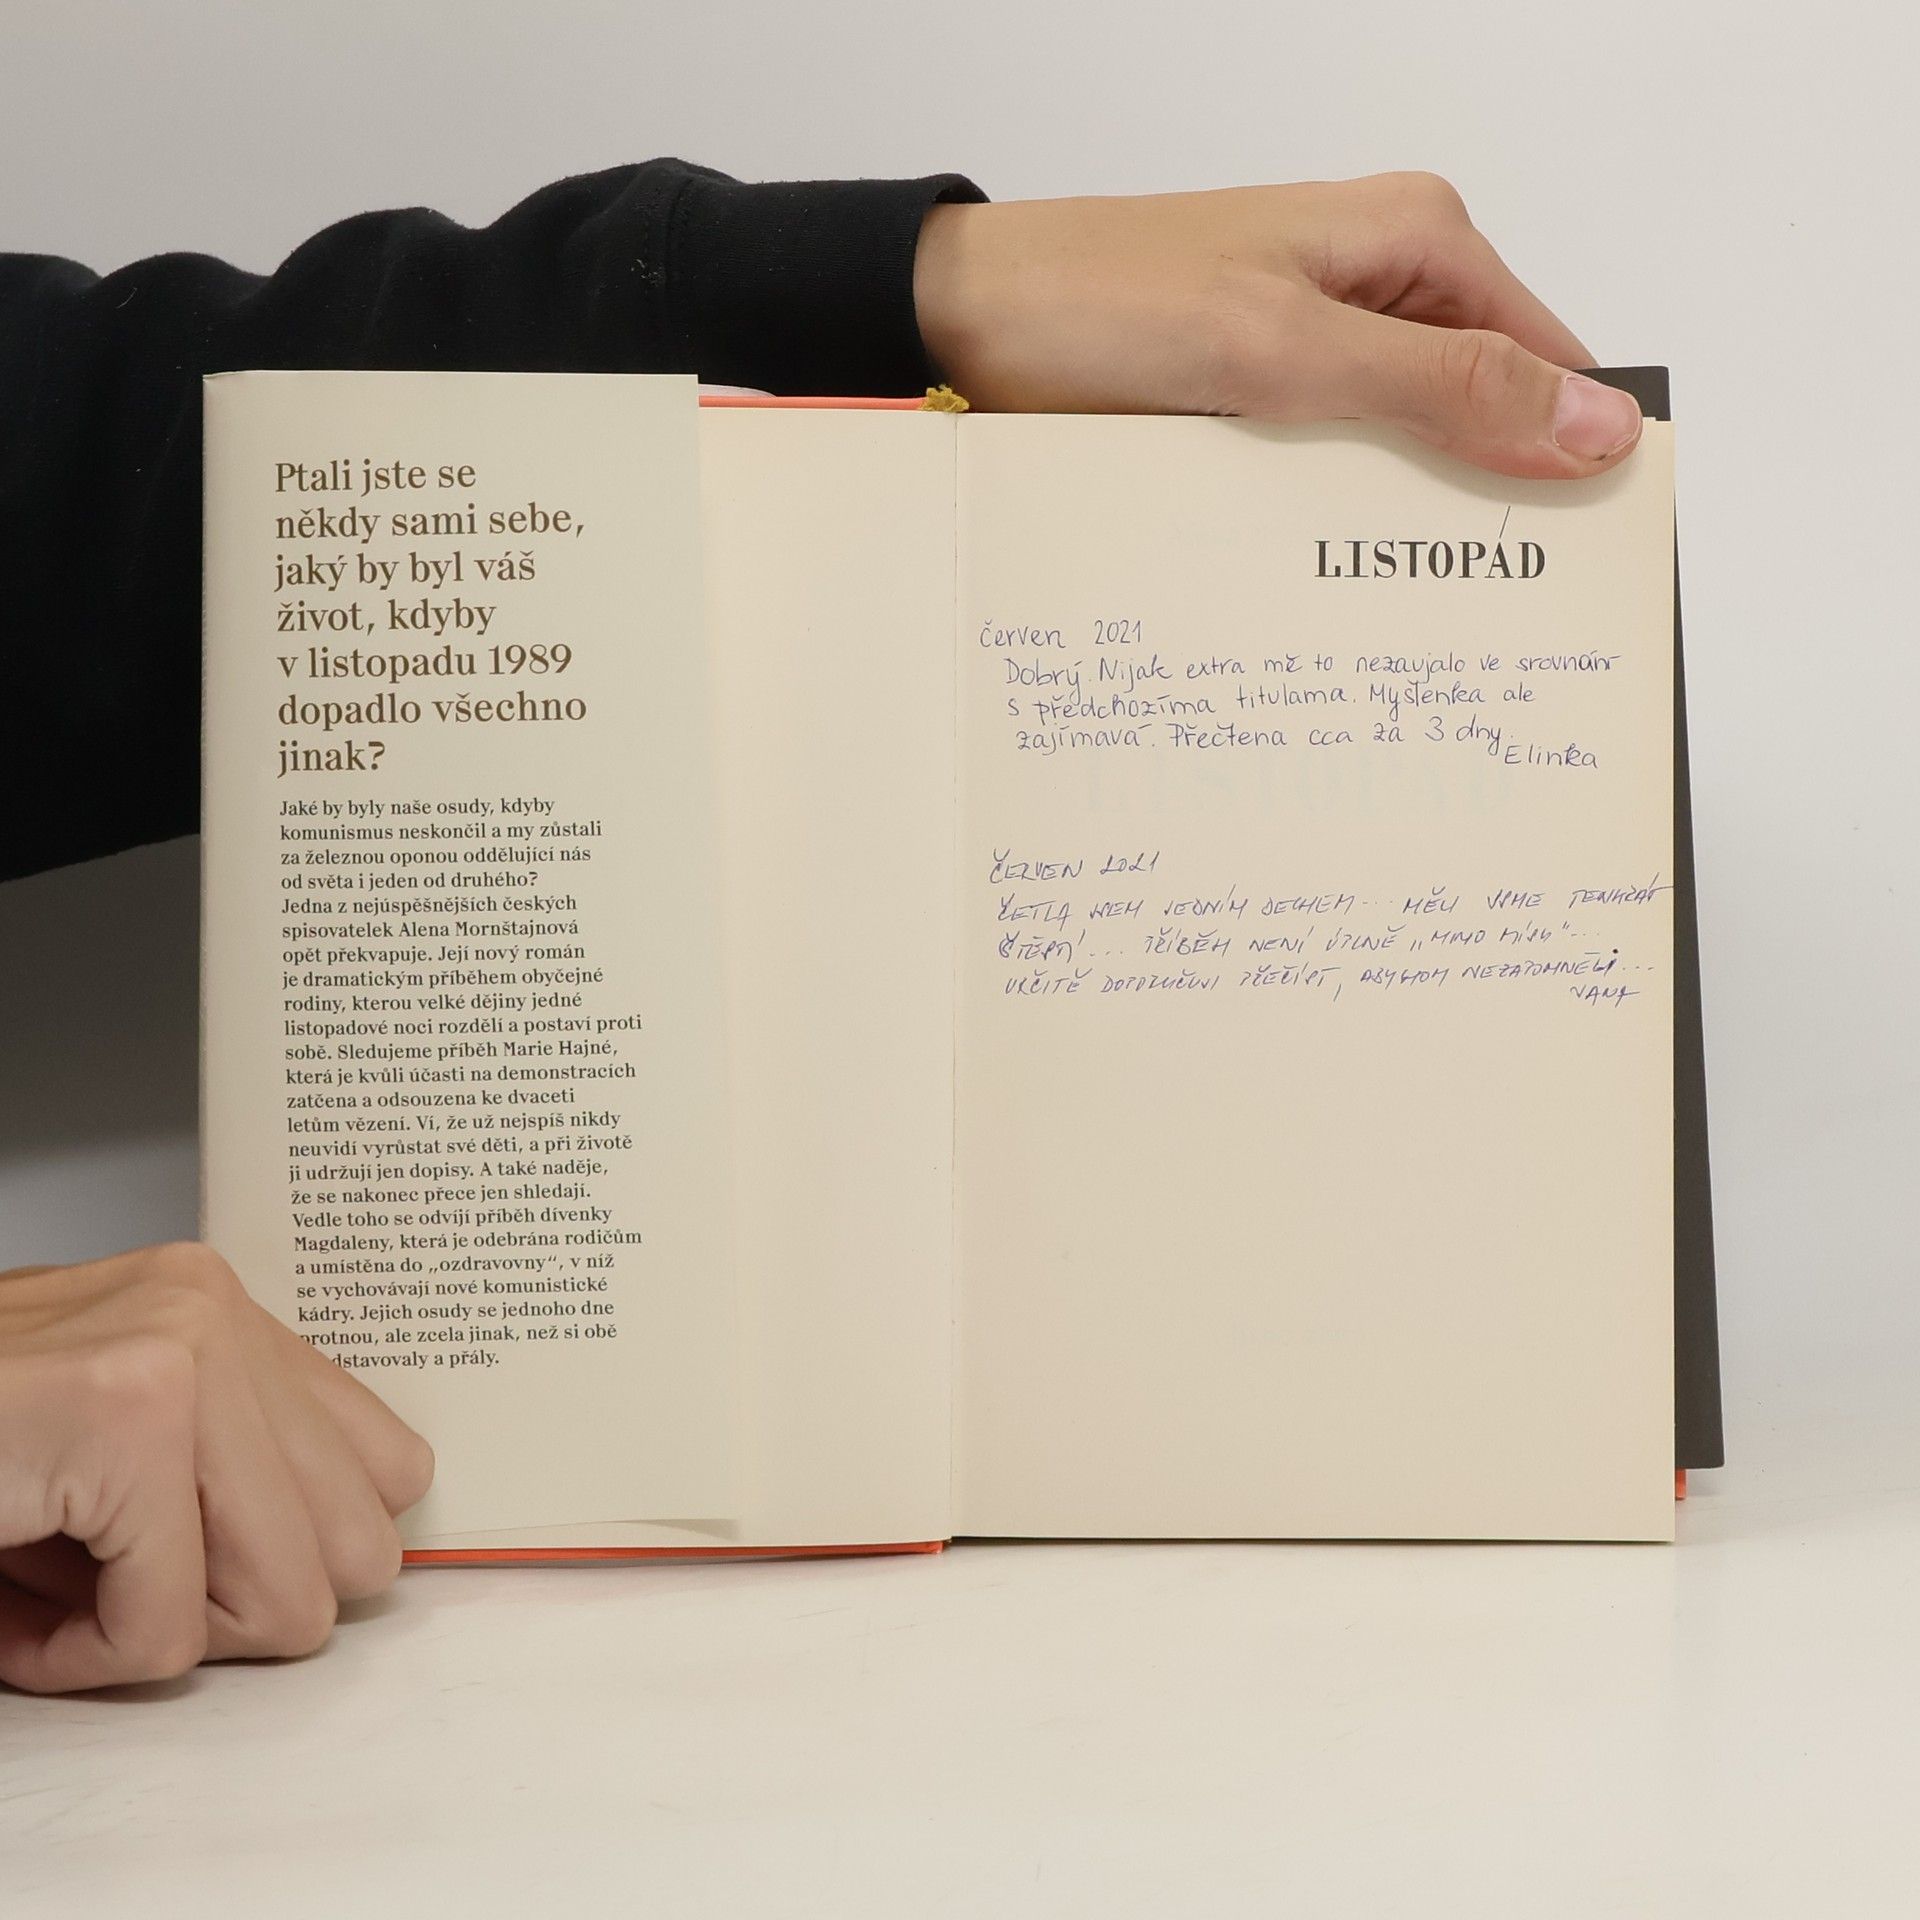 Ptali jste se
někdy sami sebe,
jaký by byl váš
život, kdyby
v listopadu 1989
dopadlo všechno
jinak?
Jaké by byly naše osudy, kdyby
komunismus neskončil a my zůstali
za železnou oponou oddělující nás
od světa i jeden od druhého?
Jedna z nejúspěšnějších českých
spisovatelek Alena Mornštajnová
opět překvapuje. Její nový román
je dramatickým příběhem obyčejné
rodiny, kterou velké dějiny jedné
listopadové noci rozdělí a postaví proti
sobě. Sledujeme příběh Marie Hajné,
která je kvůli účasti na demonstracích
zatčena a odsouzena ke dvaceti
letům vězení. Ví, že už nejspíš nikdy
neuvidí vyrůstat své děti, a při životě
ji udržují jen dopisy. A také naděje,
že se nakonec přece jen shledají.
Vedle toho se odvíjí příběh dívenky
Magdaleny, která je odebrána rodičům
a umístěna do „ozdravovny“, v níž
se vychovávají nové komunistické
kádry. Jejich osudy se jednoho dne
protnou, ale zcela jinak, než si obě
dstavovaly a přály.
LISTOPÁD
červen 2021
Dobrý. Nijak extra mě to nezaujalo ve srovnání
s předchozíma titulama. Myšlenka ale
zajímavá. Přečtena cca za 3 dny.
Elinka
ČERVEN 2021
ČETLA JSEM JEDNÍM DECHEM... MĚLI JSME TENKRÁT
ŠTĚSTÍ... PŘÍBĚH NENÍ ÚPLNĚ „MIMO MÍSU“...
URČITĚ DOPORUČUJI PŘEČÍST, ABYCHOM NEZAPOMNĚLI...
JANA